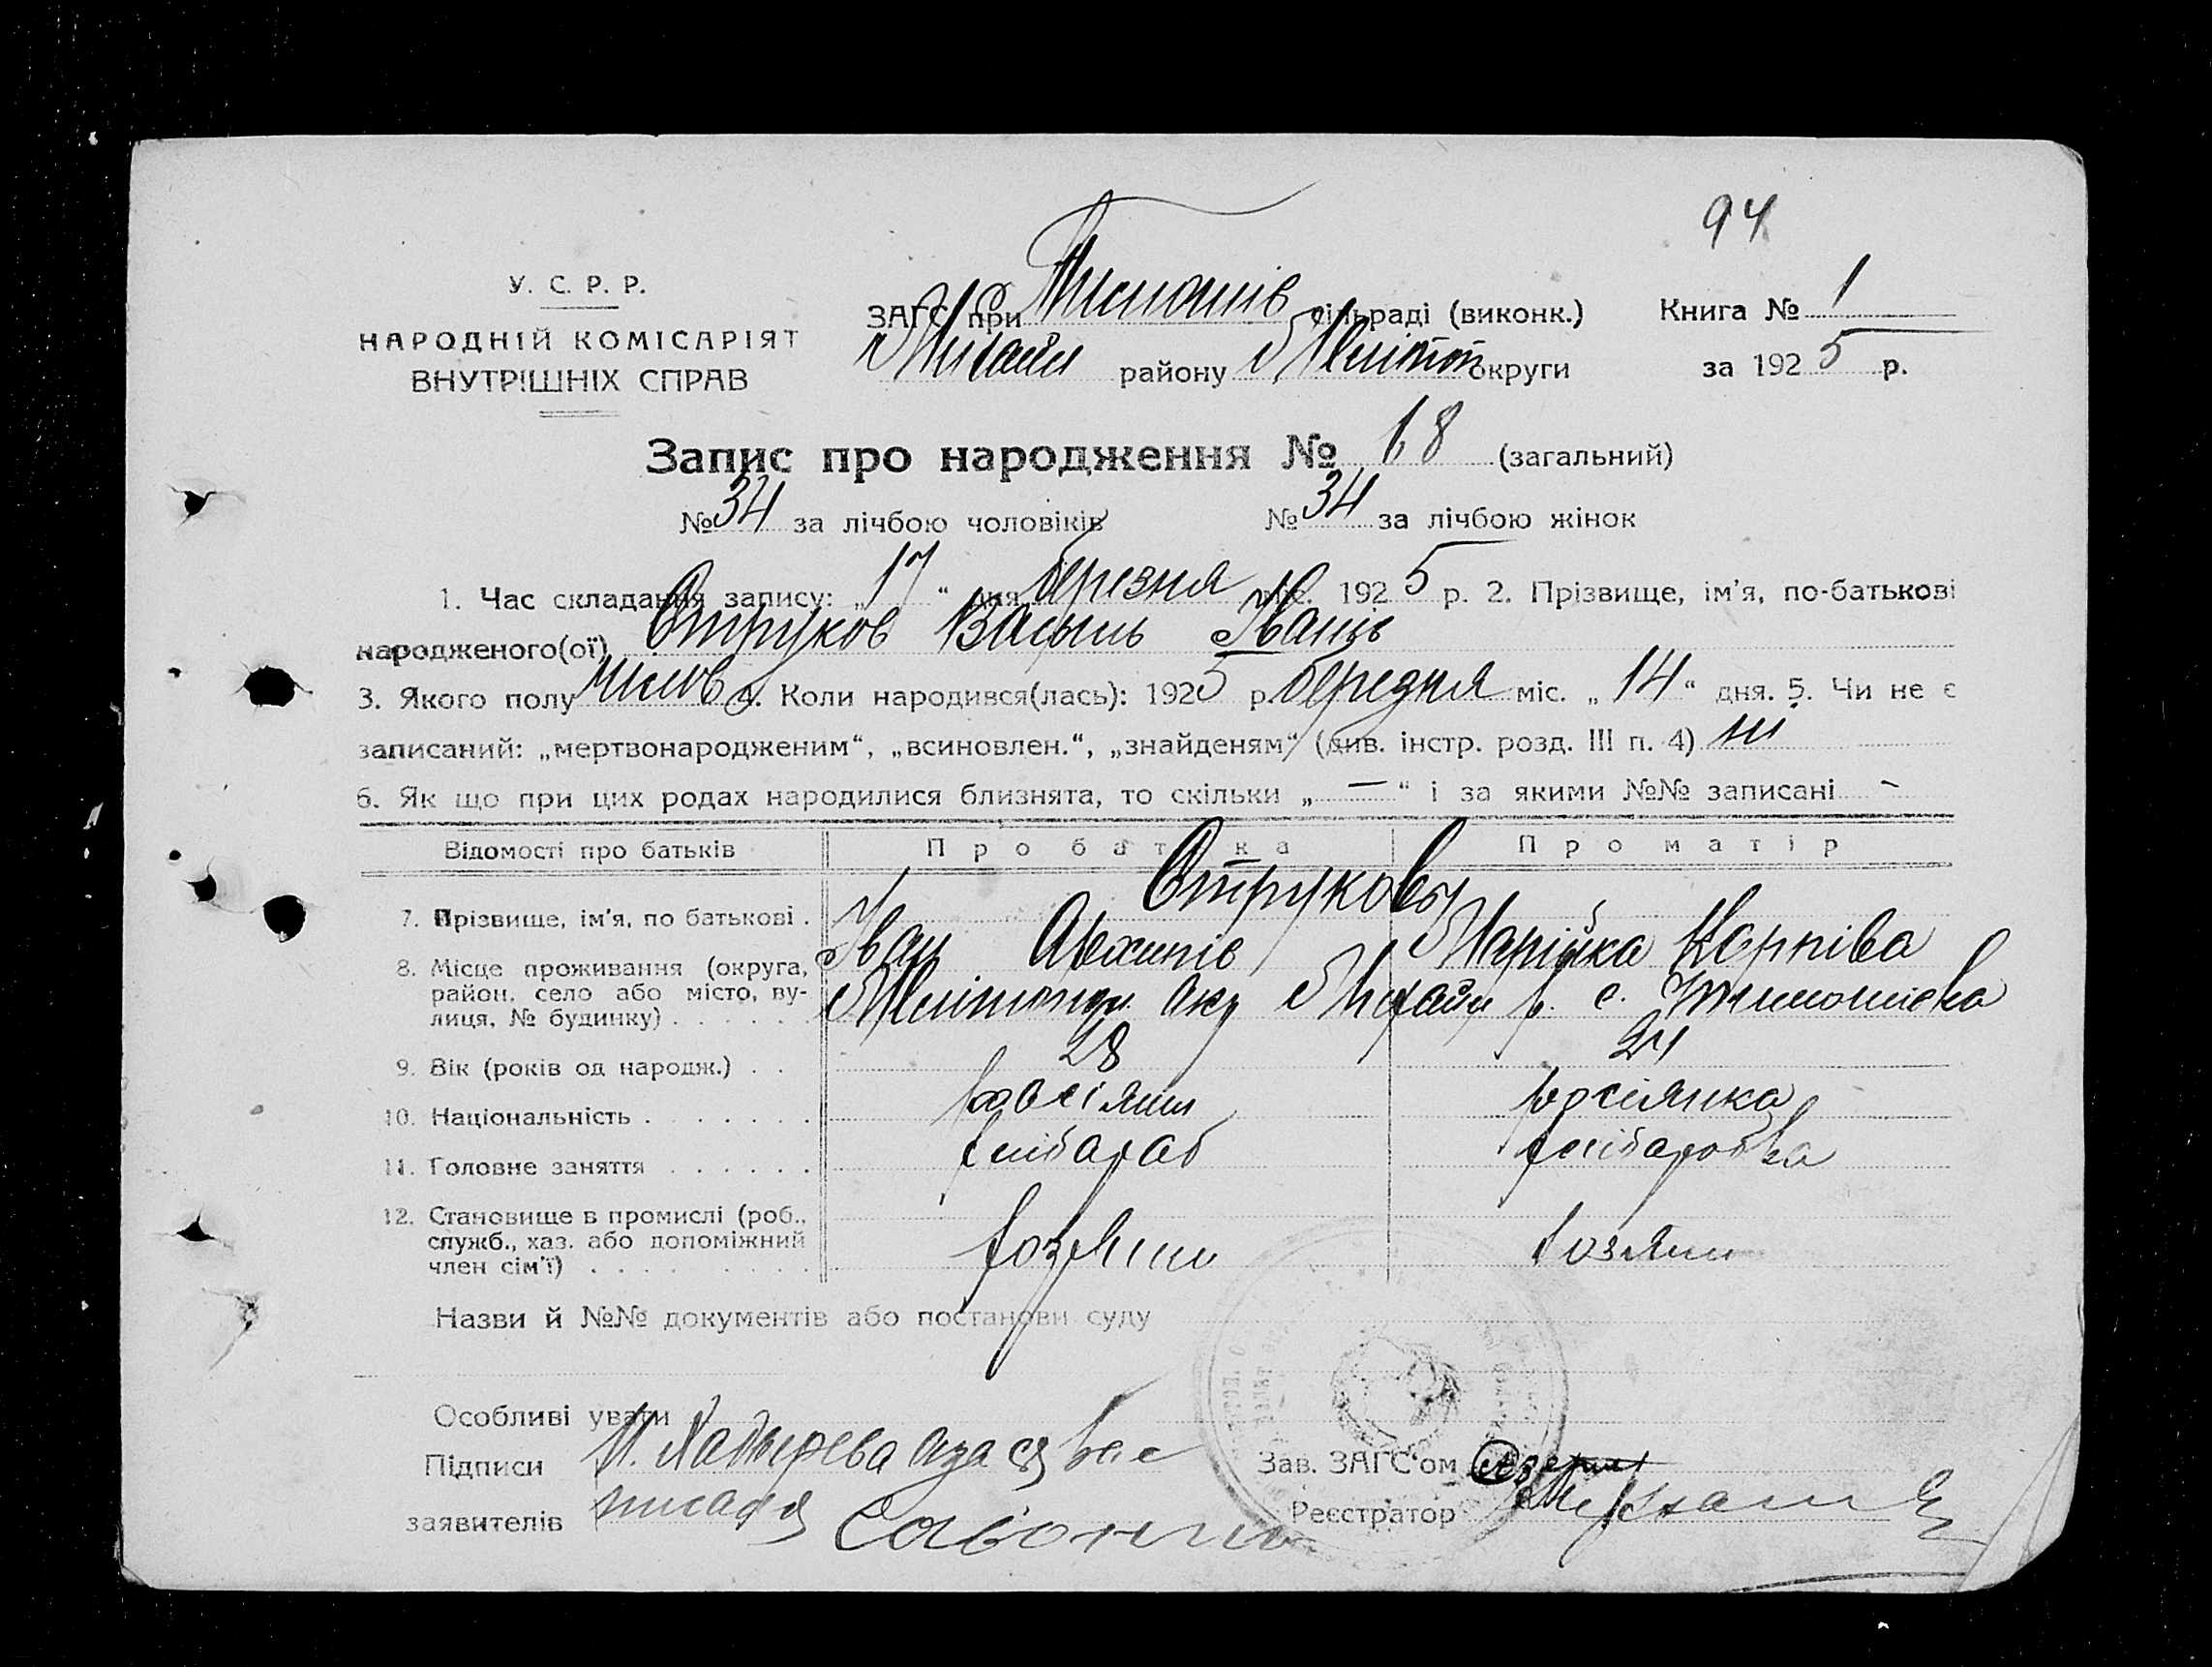 94
У. С. Р. Р.
НАРОДНІЙ КОМІСАРІЯТ
ВНУТРІШНІХ СПРАВ
ЗАГС при Тимошів сільраді (виконк.) Книга № 1
Михайл району Мелітоп округи за 1925 р.
Запис про народження № 68 (загальний)
№ 34 за лічбою чоловіків № 34 за лічбою жінок
1. Час складання запису: „17“ дня березня міс. 1925 р. 2. Прізвище, ім'я, по-батькові
народженого(ої) Струков Василь Іванів
3. Якого полу чолов 4. Коли народився(лась): 1925 р. березня міс. „14“ дня. 5. Чи не є
записаний: „мертвонародженим“, „всиновлен.“, „знайденям“ (див. інстр. розд. III п. 4) ні
6. Як що при цих родах народилися близнята, то скільки „—“ і за якими №№ записані -
Відомості про батьків Про батька Про матір
Струковы
7. Прізвище, ім'я, по батькові . Іван Архипів Марійка Карпівa
8. Місце проживання (округа,
район, село або місто, ву-
лиця, № будинку) . . . . . . Мелітопол окр Михайл р. с. Тимошівка
9. Вік (років од народж.) . . 28 24
10. Національність . . . . . . . росіянин росіянка
11. Головне заняття . . . . . . хлібараб хлібаробка
12. Становище в промислі (роб.,
служб., хаз. або допоміжний
член сім'ї) . . . . . . . . . хозяин хозяин
Назви й №№ документів або постанови суду
Особливі уваги
Підписи
заявителів
Зав. ЗАГС'ом
Реєстратор